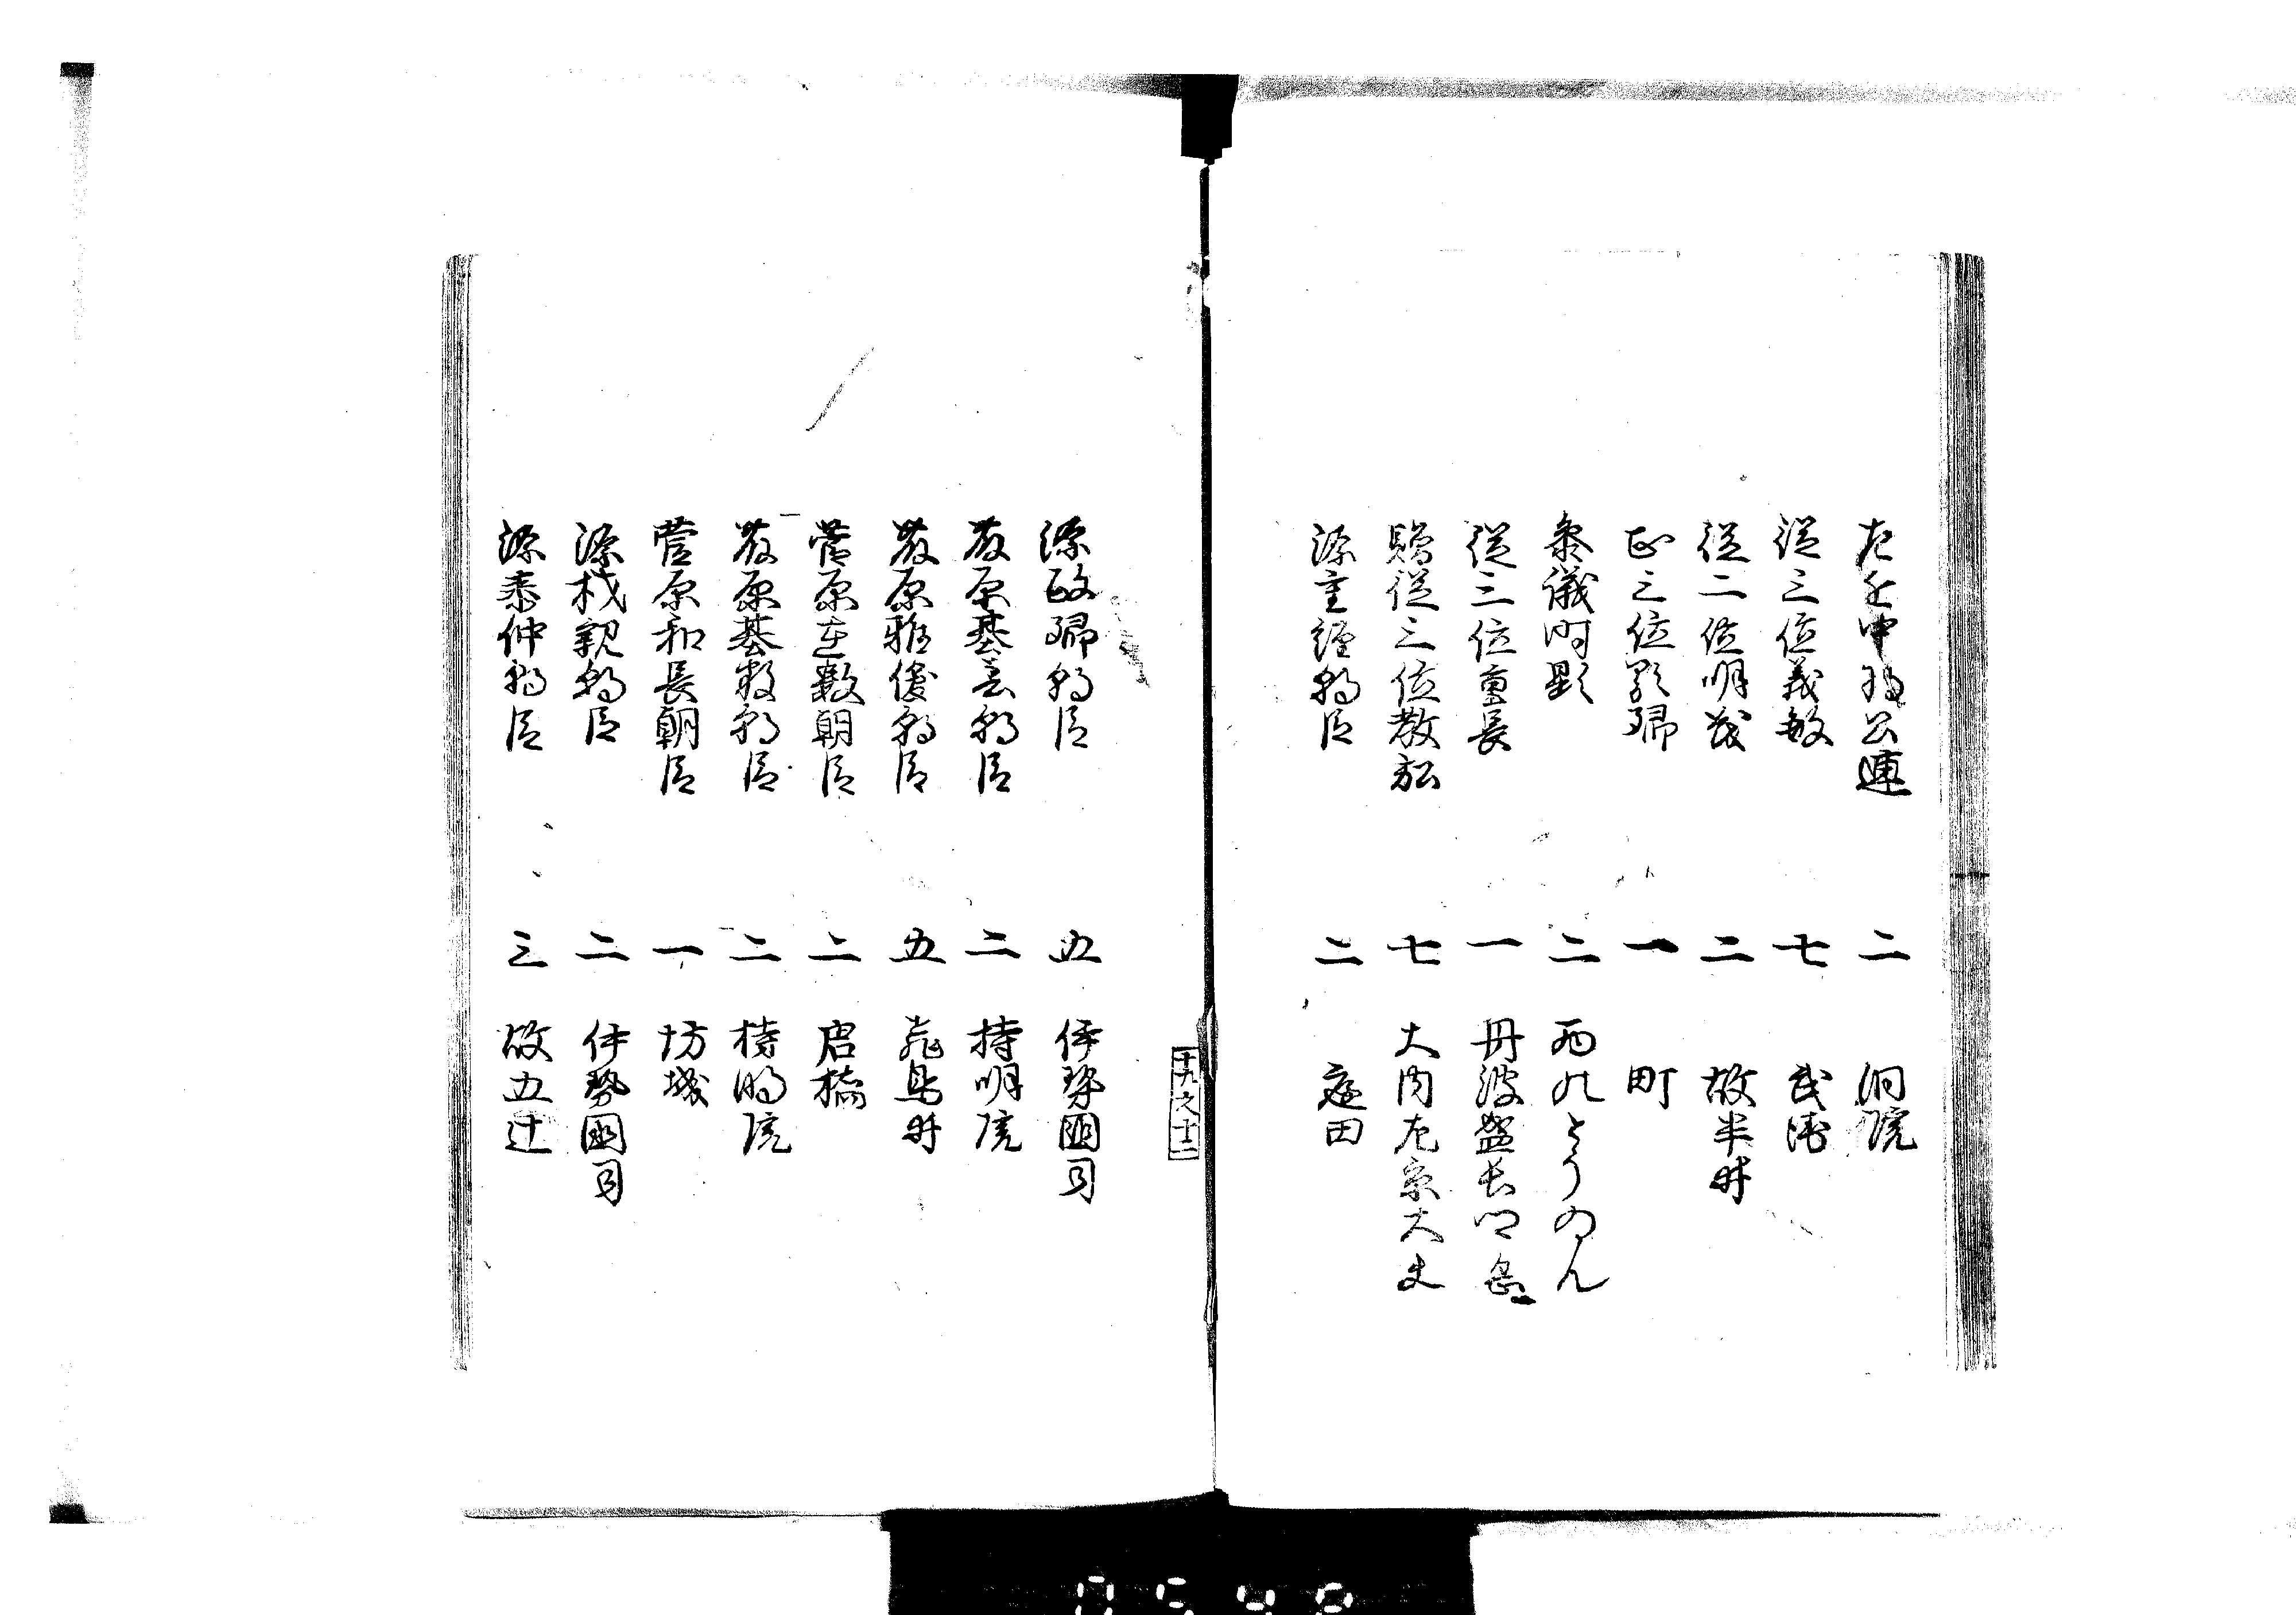 左近中将公連 二 洞院
従三位義敏 七 武衛
従二位明茂 二 故半井
正三位顕郷 一 町
参議時顕 二 西のとうゐん
従三位重長 一 丹波盛長卿
贈従三位教弘 七 大内左京大夫
源重経朝臣 二 庭田
十九之十二
源政郷朝臣 五 伊勢國司
藤原基春朝臣 二 持明院
藤原雅俊朝臣 五 飛鳥井
菅原在数朝臣 二 唐橋
藤原基数朝臣 二 持明院
菅原和長朝臣 一 坊城
源材親朝臣 二 伊勢國司
源泰仲朝臣 三 故五辻